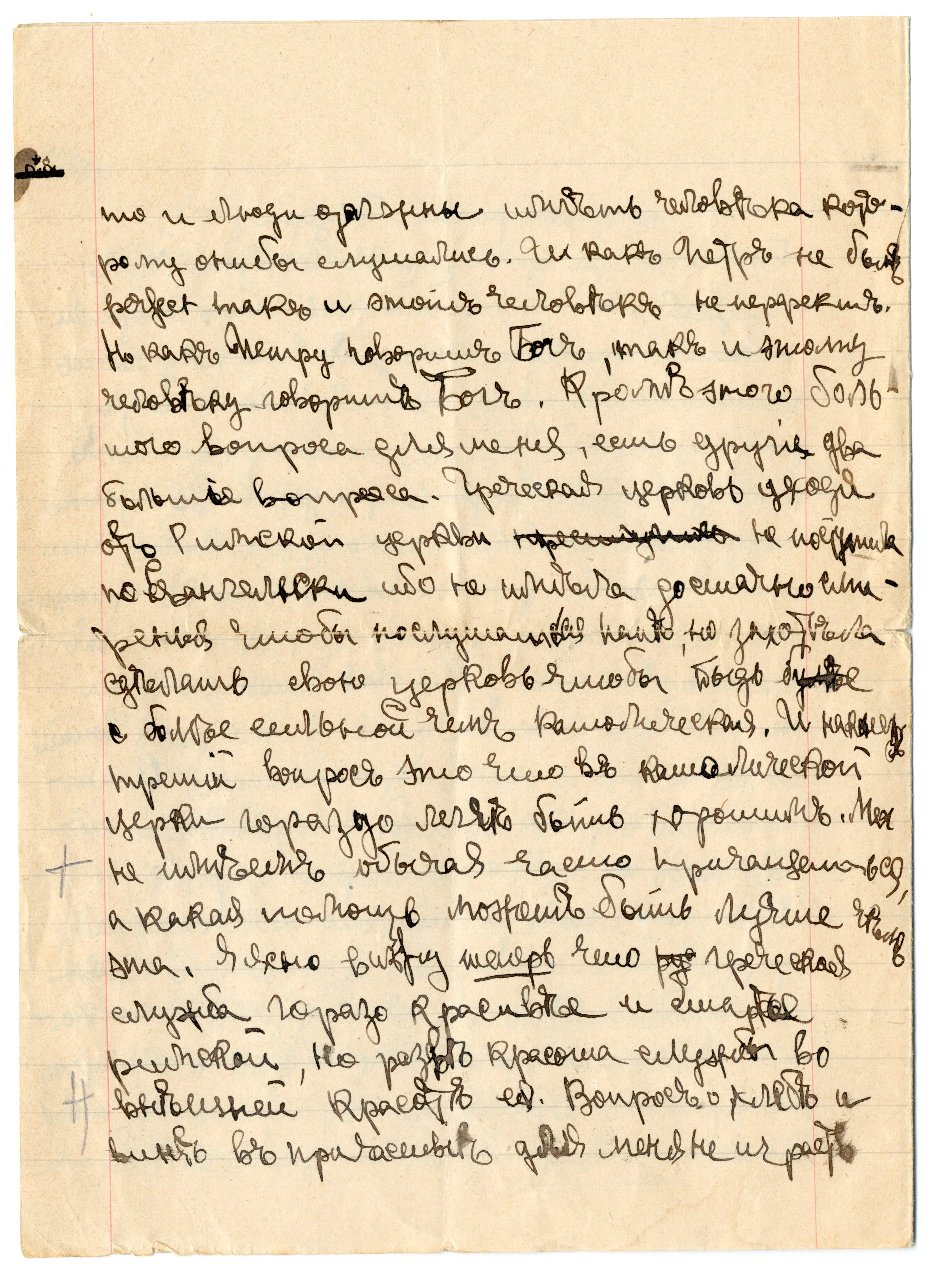 то и люди должны имѣть человѣка кото-
рому онибы слушались. И какъ Петръ не былъ
perfect такъ и этотъ человѣкъ не перфектъ.
Но какъ Петру говоритъ Богъ, такъ и этому
человѣку говоритъ Богъ. Кромѣ этого боль-
шого вопроса для меня, есть другiе два
большiе вопроса. Греческая церковь уходя
отъ Римской церкви не поступила
по Евангельски ибо не имѣла достаточно сми-
ренiя чтобы послушаться папы, но захотѣла
сдѣлать свою церковь чтобы быть
болѣе сильной чемъ католическая. И наконецъ
третiй вопросъ это что въ католической
церкви гораздо легче быть хорошимъ. Мы
не имѣемъ обычая часто причащаться,
а какая помощь можетъ быть лучше чѣмъ
эта. Я ясно вижу теперь что греческая
служба горазо красивѣе и старѣе
римской, но развѣ красота службы во
внѣшней красотѣ ея. Вопросъ о хлѣбѣ и
винѣ въ причастьи для меня не играетъ